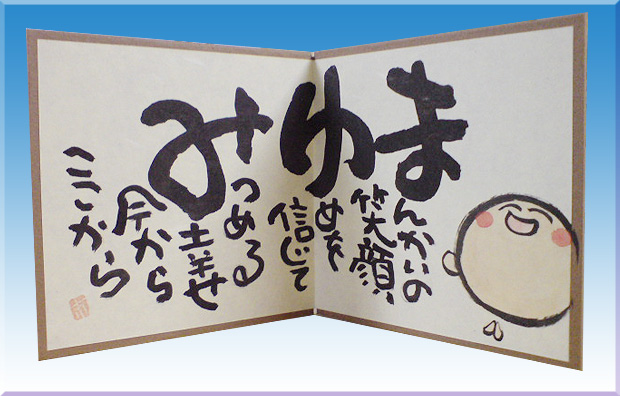 まんかいの
笑顔
ゆめを
信じて
みつめる
幸せ
今から
ここから